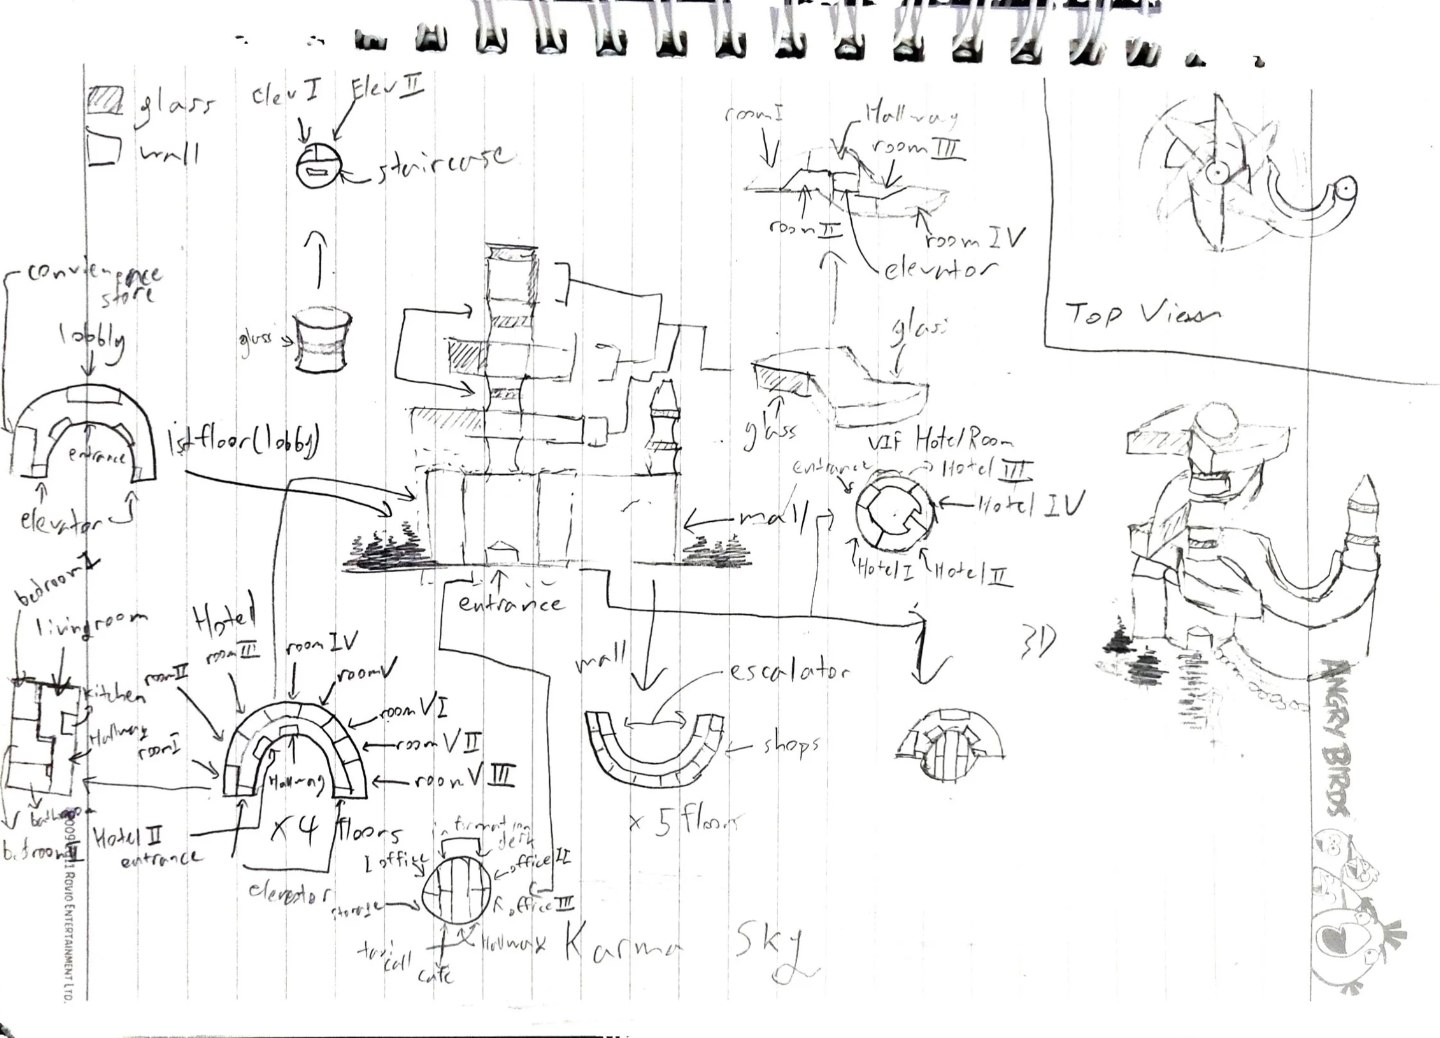 glass
wall
Elev I
Elev II
staircase
convienence
store
lobbly
entrance
elevator
1st floor (lobby)
room I
Hallway
room III
room II
room IV
elevator
glass
glass
VIP Hotel Room
entrance
Hotel III
Hotel IV
Hotel I
Hotel II
mall
entrance
Top View
3D
bedroom I
livingroom
kitchen
Hallway
Hotel
room III
room IV
room V
room II
room VI
room I
room VII
room VIII
Hallway
Hotel II
entrance
x 4 floors
elevator
mall
escalator
shops
x 5 floors
information
desk
I office
office II
office III
storage
Hallway
taxi
call
cafe
Karma Sky
ANGRY BIRDS
ROVIO ENTERTAINMENT LTD.